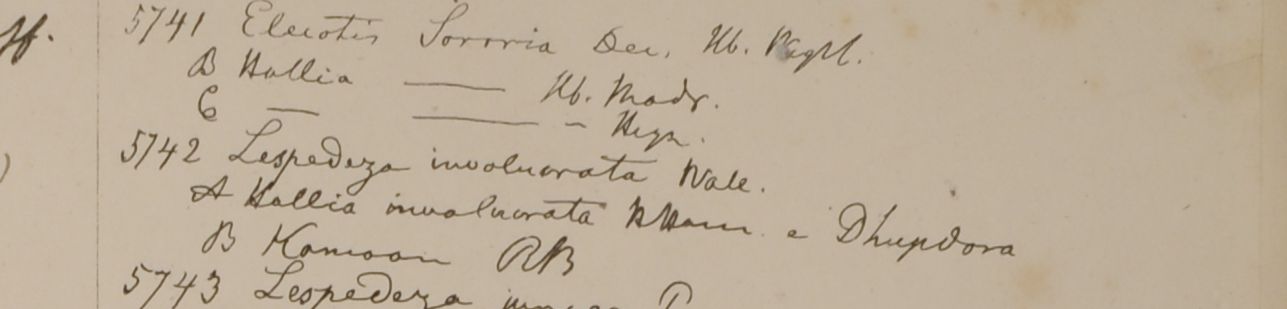 5741 Eleiotis Sororia Dec. Hb. Wight.
B Hallia —— Hb. Madr.
C — —— - Heyn.
5742 Lespedeza involucrata Wall.
A Hallia involucrata HHam e Dhupdora
B Kamoon RB
5743 Lespedeza